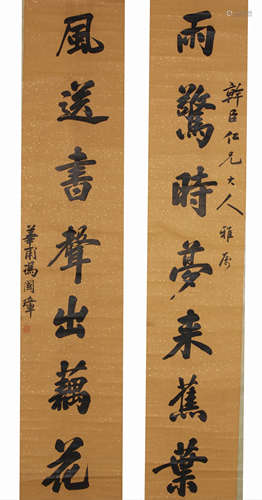 雨驚時夢来蕉葉
幹臣仁兄大人雅属
風送書聲出藕花
華甫馮國璋